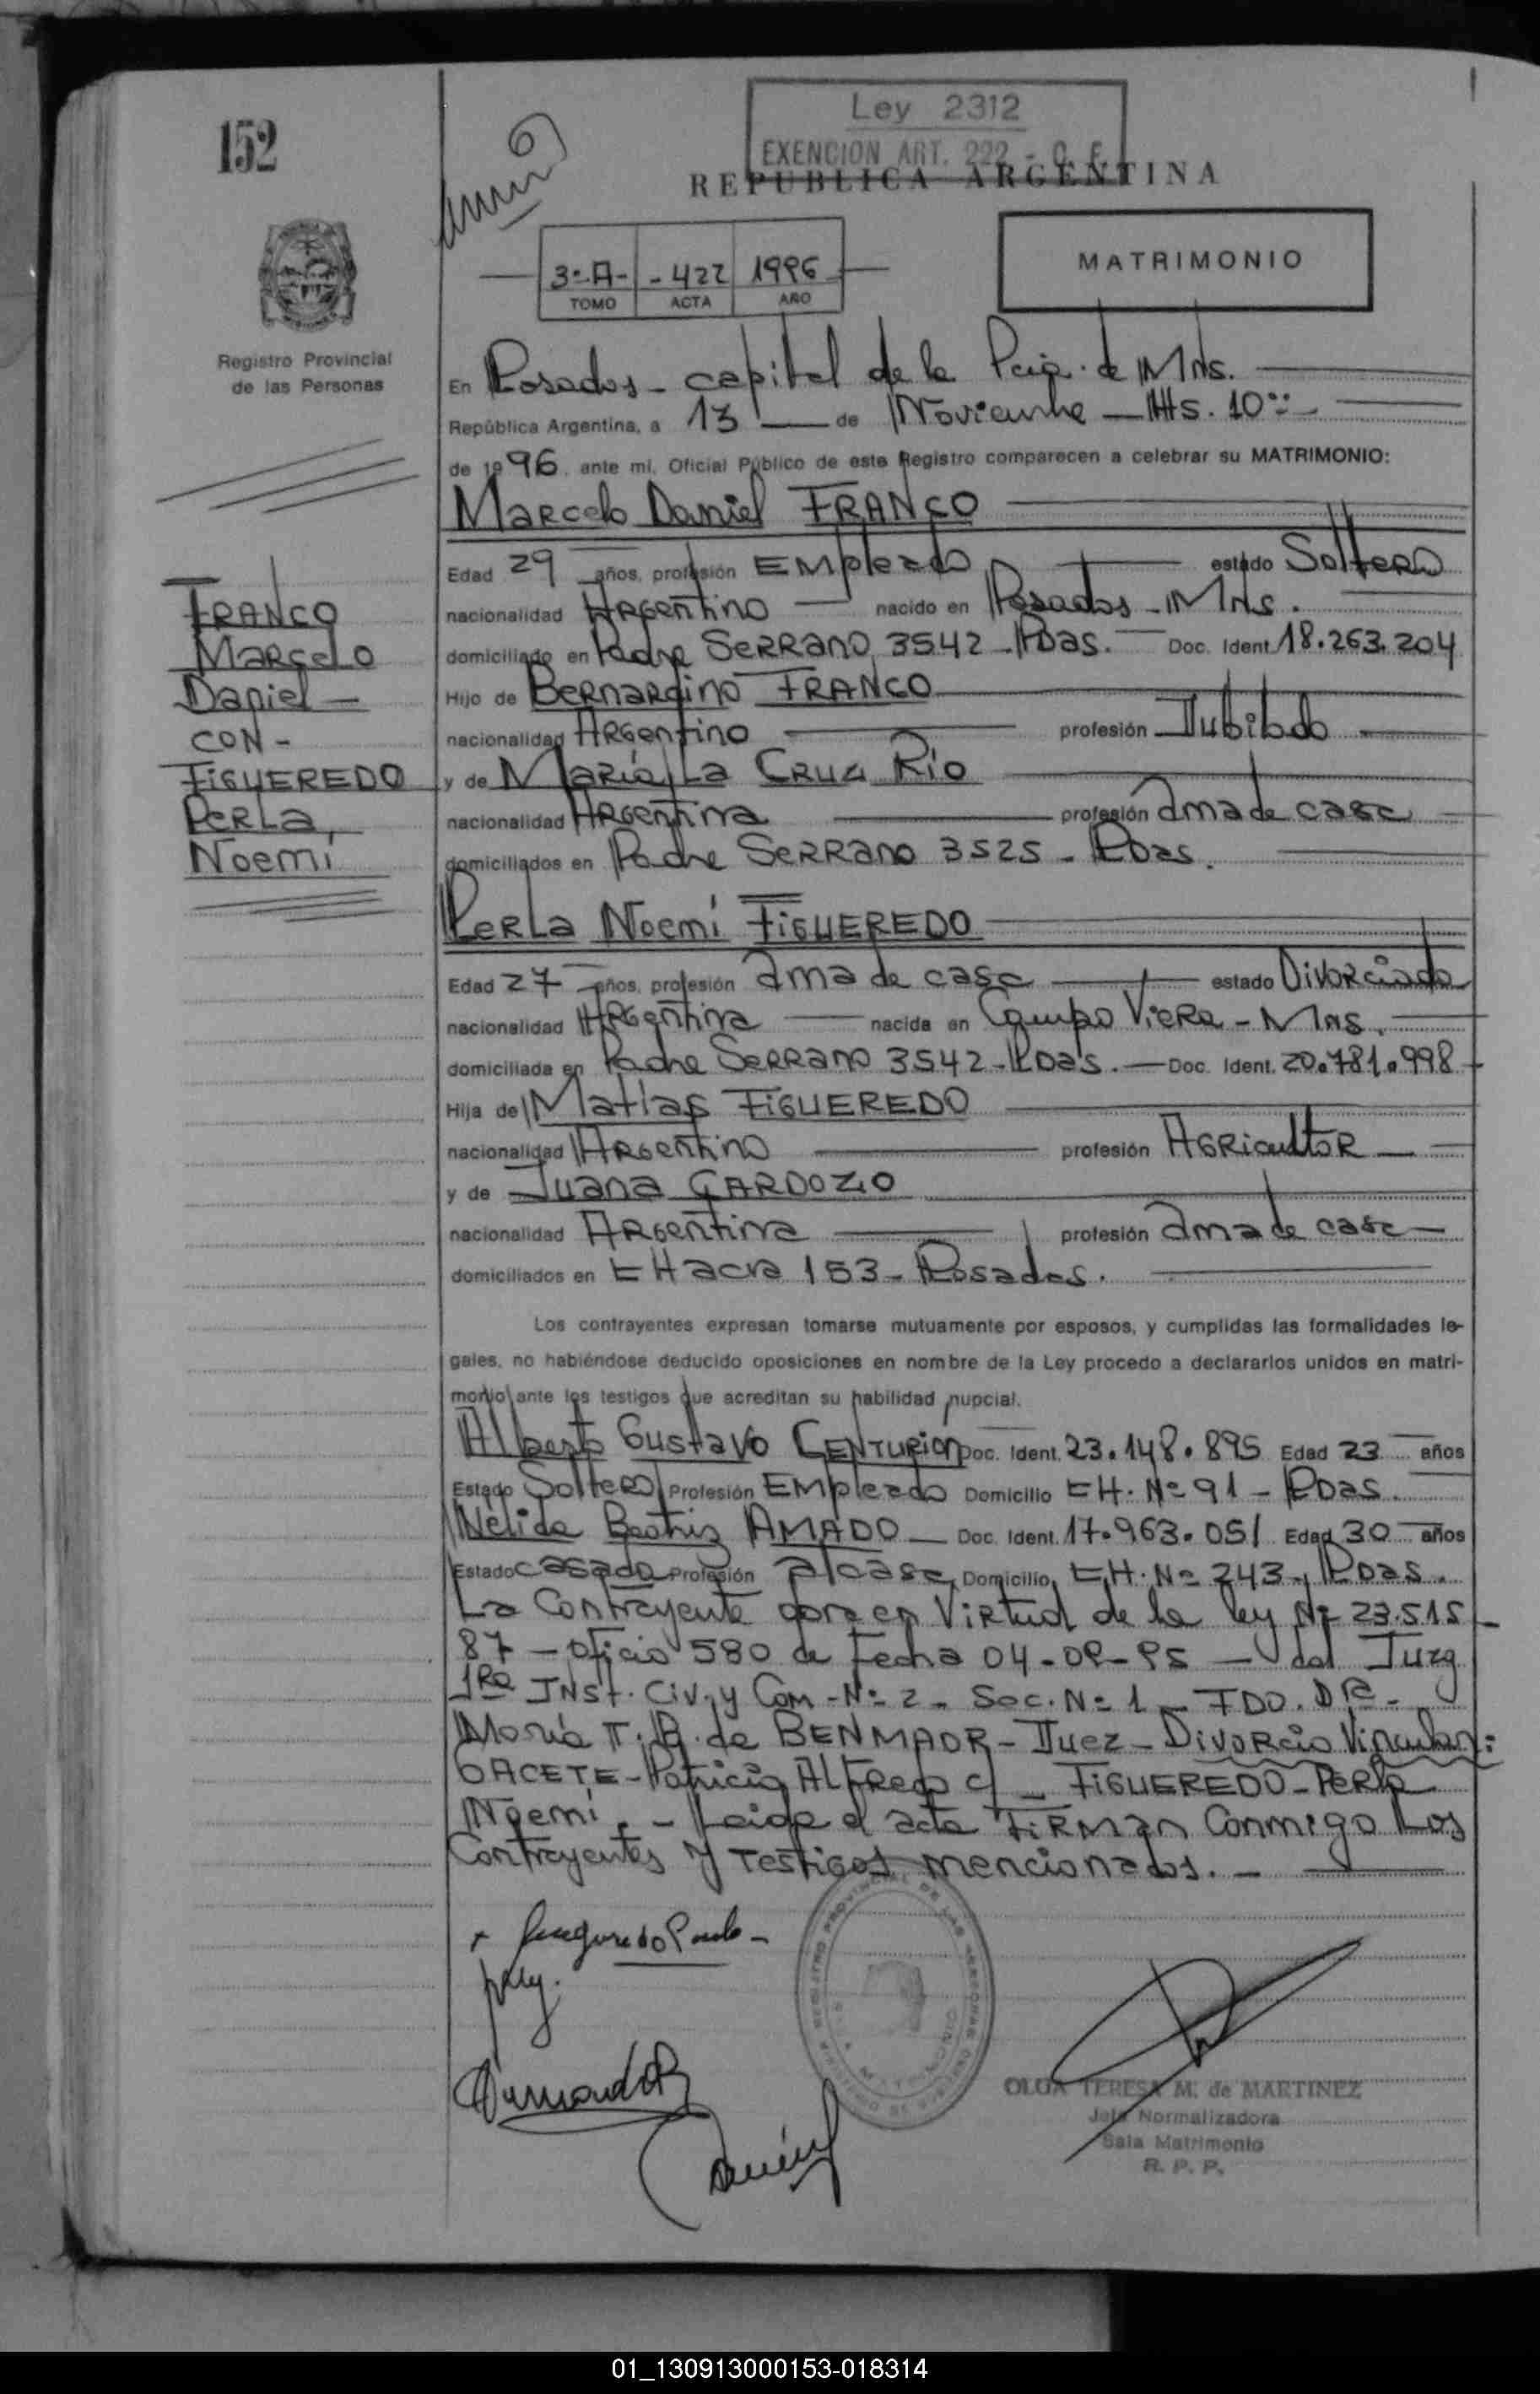 152
Ley 2312
EXENCION ART. 222 - C. F.
REPUBLICA ARGENTINA
3º-A- -422 1996
TOMO ACTA AÑO
MATRIMONIO
Registro Provincial
de las Personas
En Posadas - capital de la Pcia. de Mnes.
República Argentina, a 13 de Noviembre Hs. 10
de 1996 ante mi, Oficial Público de este Registro comparecen a celebrar su MATRIMONIO:
Marcelo Daniel FRANCO
Edad 29 años, profesión EMpleado estado Soltero
nacionalidad Argentino nacido en Posadas - Mnes.
domiciliado en Padre Serrano 3542 - Pdas. Doc. Ident. 18.263.204
Hijo de Bernardino FRANCO
nacionalidad Argentino profesión Jubilado
y de María La Cruz Río
nacionalidad Argentina profesión ama de casa
domiciliados en Padre Serrano 3525 - Pdas.
FRANCO
Marcelo
Daniel -
CON -
FIGUEREDO
Perla,
Noemí
Perla Noemí FIGUEREDO
Edad 27 años, profesión ama de casa estado Divorciada
nacionalidad Argentina nacida en Campo Viera - Mns.
domiciliada en Padre Serrano 3542 - Pdas. Doc. Ident. 20.781.998
Hija de Matías FIGUEREDO
nacionalidad Argentino profesión Agricultor
y de Juana CARDOZO
nacionalidad Argentina profesión ama de casa
domiciliados en CHacra 153 - Posadas.
Los contrayentes expresan tomarse mutuamente por esposos, y cumplidas las formalidades le-
gales, no habiéndose deducido oposiciones en nombre de la Ley procedo a declararlos unidos en matri-
monio ante los testigos que acreditan su habilidad nupcial.
Alberto Gustavo CENTURION Doc. Ident. 23.148.895 Edad 23 años
Estado Soltero Profesión EMpleado Domicilio CH. Nº 91 - Pdas.
Nélida Beatriz AMADO Doc. Ident. 17.963.051 Edad 30 años
Estado casada Profesión Domicilio CH. Nº 243, Pdas.
La Contrayente en Virtud de la ley Nº 23.515
87 - Oficio 580 de Fecha 04-09-95 - del Juzg
1ra INSt. Civ. y Com - Nº 2 - Sec. Nº 1 - FDO. DRA -
María T. B. de BENMAOR - Juez - Divorcio Vincular:
GACETE - Patricio Alfredo c/ - FIGUEREDO - Perla
Noemí. - Leida el acta FIRMan Conmigo Los
Contrayentes y testigos mencionados. -
REGISTRO PROVINCIAL DE LAS PERSONAS
OLGA TERESA M. de MARTINEZ
Jefa Normalizadora
Sala Matrimonio
R. P. P.
01_130913000153-018314